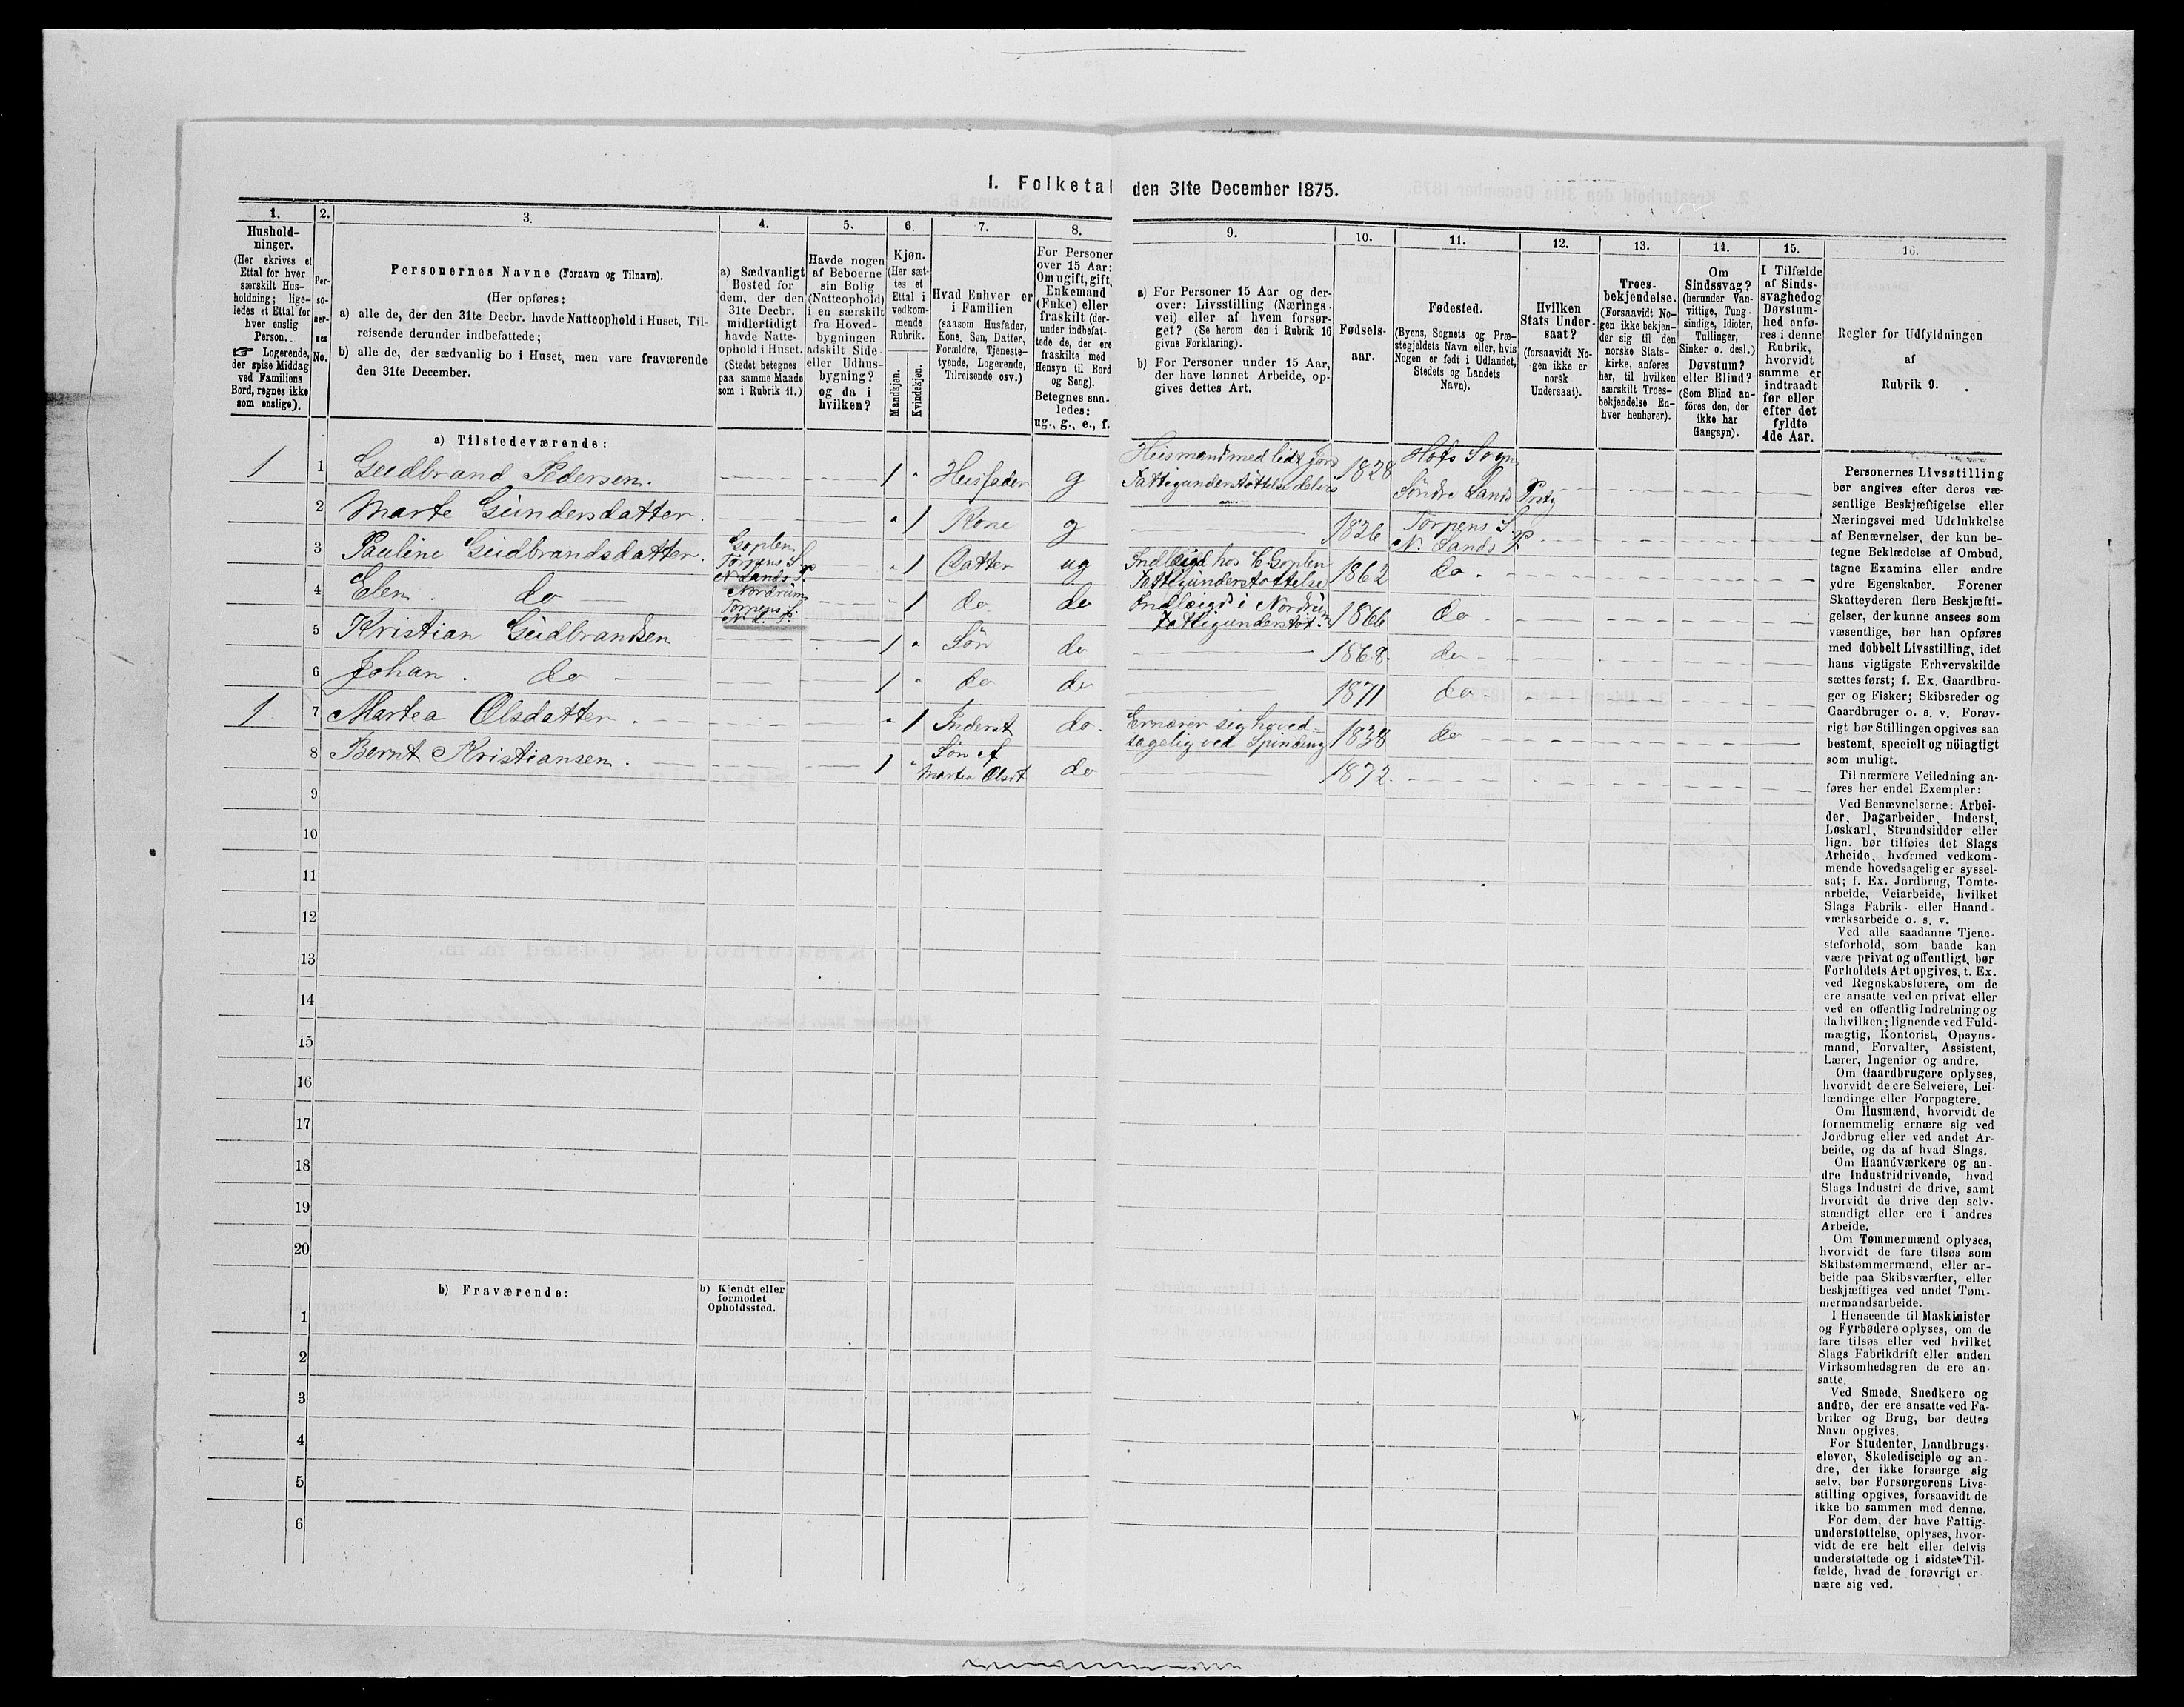 I. Folketal den 31te December 1875.
1.
Hushold-
ninger.
(Her skrives et
Ettal for hver
særskilt Hus-
holdning; lige-
ledes et Ettal for
hver enslig
Person.
☞ Logerende,
der spise Middag
ved Familiens
Bord, regnes ikke
som enslige).
2.
Per-
so-
ner-
nes
No.
3.
Personernes Navne (Fornavn og Tilnavn).
(Her opføres:
a) alle de, der den 31te Decbr. havde Natteophold i Huset, Til-
reisende derunder indbefattede;
b) alle de, der sædvanlig bo i Huset, men vare fraværende
den 31te December.
4.
a) Sædvanligt
Bosted for
dem, der den
31te Decbr.
midlertidigt
havde Natte-
ophold i Huset.
(Stedet betegnes
paa samme Maade
som i Rubrik 11.)
5.
Havde nogen
af Beboerne
sin Bolig
(Natteophold)
i en særskilt
fra Hoved-
bygningen
adskilt Side-
eller Udhus-
bygning?
og da i
hvilken?
6.
Kjøn.
(Her sæt-
tes et
Ettal i
vedkom-
mende
Rubrik.
Mandkjøn.
Kvindekjøn.
7.
Hvad Enhver er
i Familien
(saasom Husfader,
Kone, Søn, Datter,
Forældre, Tjeneste-
tyende, Logerende,
Tilreisende osv.)
8.
For Personer
over 15 Aar:
Om ugift, gift,
Enkemand
(Enke) eller
fraskilt (der-
under indbefat-
tede de, der ere
fraskilte med
Hensyn til Bord
og Seng).
Betegnes saa-
ledes:
ug., g., e., f.
9.
a) For Personer 15 Aar og der-
over: Livsstilling (Nærings-
vei) eller af hvem forsør-
get? (Se herom den i Rubrik 16
givne Forklaring).
b) For Personer under 15 Aar,
der have lønnet Arbeide, op-
gives dettes Art.
10.
Fødsels-
aar.
11.
Fødested.
(Byens, Sognets og Præ-
stegjeldets Navn eller, hvis
Nogen er født i Udlandet,
Stedets og Landets
Navn).
12.
Hvilken
Stats Under-
saat?
(forsaavidt No-
gen ikke er
norsk
Undersaat).
13.
Troes-
bekjendelse.
(Forsaavidt No-
gen ikke bekjen-
der sig til den
norske Stats-
kirke, anføres
her, til hvilken
særskilt Troes-
bekjendelse En-
hver henhører).
14.
Om
Sindssvag?
(herunder Van-
vittige, Tung-
sindige, Idioter,
Tullinger,
Sinker o. desl.)
Døvstum?
eller Blind?
(Som Blind an-
føres den, der
ikke har
Gangsyn).
15.
I Tilfælde
af Sinds-
svaghed og
Døvstum-
hed anfø-
res i denne
Rubrik,
hvorvidt
samme er
indtraadt
før eller
efter det
fyldte
4de Aar.
16.
Regler for Udfyldningen
af
Rubrik 9.
a) Tilstedeværende:
1 1 Gudbrand Pedersen. 1 " Husfader g Husmand med lidt Jord Fattigunderstøttelse delvis 1828 Hofs Sogn Søndre Lands Prstg
2 Marte Gundersdatter. " 1 Kone g 1826 Torpens S. N. Lands P.
3 Pauline Gudbrandsdatter. Goplen Torpens S. N. Lands P. " 1 Datter ug Indlagd hos C Goplen Fattigunderstøttelse 1862 do
4 Elen. do Nordrum Torpens S. N. L. P. 1 do do Indlægd i Nordrum Fattigunderstøt. 1866 do
5 Kristian Gudbrandsen 1 " Søn do 1868. do
6 Johan. do 1 " do do 1871 do
1 7 Martea Olsdatter. " 1 Inderst do. Ernærer sig hoved- sagelig ved Spinding 1838 do
8 Bernt Kristiansen. 1 " Søn af Martea Olsdt do 1872.
9
10
11
12
13
14
15
16
17
18
19
20
b) Fraværende:
b) Kjendt eller
formodet
Opholdssted.
1
2
3
4
5
6
Personernes Livsstilling
bør angives efter deres væ-
sentlige Beskjæftigelse eller
Næringsvei med Udelukkelse
af Benævnelser, der kun be-
tegne Beklædelse af Ombud,
tagne Examina eller andre
ydre Egenskaber. Forener
Skatteyderen flere Beskjæfti-
gelser, der kunne ansees som
væsentlige, bør han opføres
med dobbelt Livsstilling, idet
hans vigtigste Erhvervskilde
sættes først; f. Ex. Gaardbru-
ger og Fisker; Skibsreder og
Gaardbruger o. s. v. Forøv-
rigt bør Stillingen opgives saa
bestemt, specielt og nöiagtigt
som muligt.
Til nærmere Veiledning an-
føres her endel Exempler:
Ved Benævnelserne: Arbei-
der, Dagarbeider, Inderst,
Løskarl, Strandsidder eller
lign. bør tilføies det Slags
Arbeide, hvormed vedkom-
mende hovedsagelig er syssel-
sat; f. Ex. Jordbrug, Tomte-
arbeide, Veiarbeide, hvilket
Slags Fabrik- eller Haand-
værksarbeide o. s. v.
Ved alle saadanne Tjene-
steforhold, som baade kan
være privat og offentligt, bør
Forholdets Art opgives, t. Ex.
ved Regnskabsførere, om de
ere ansatte ved en privat eller
ved en offentlig Indretning og
da hvilken; lignende ved Fuld-
mægtig, Kontorist, Opsyns-
mand, Forvalter, Assistent,
Lærer, Ingeniør og andre.
Om Gaardbrugere oplyses,
hvorvidt de ere Selveiere, Lei-
lændinge eller Forpagtere.
Om Husmænd, hvorvidt de
fornemmelig ernære sig ved
Jordbrug eller ved andet Ar-
beide, og da af hvad Slags.
Om Haandværkere og an-
dre Industridrivende, hvad
Slags Industri de drive, samt
hvorvidt de drive den selv-
stændigt eller ere i andres
Arbeide.
Om Tømmermænd oplyses,
hvorvidt de fare tilsøs som
Skibstømmermænd, eller ar-
beide paa Skibsværfter, eller
beskjæftiges ved andet Tøm-
mermandsarbeide.
I Henseende til Maskinister
og Fyrbødere oplyses, om de
fare tilsøs eller ved hvilket
Slags Fabrikdrift eller anden
Virksomhedsgren de ere an-
satte.
Ved Smede, Snedkere og
andre, der ere ansatte ved Fa-
briker og Brug, bør dettes
Navn opgives.
For Studenter, Landbrugs-
elever, Skoledisciple og an-
dre, der ikke forsørge sig
selv, bør Forsørgerens Livs-
stilling opgives, forsaavidt de
ikke bo sammen med denne.
For dem, der have Fattig-
understøttelse, oplyses, hvor-
vidt de ere helt eller delvis
understøttede og i sidste Til-
fælde, hvad de forøvrigt er-
nære sig ved.